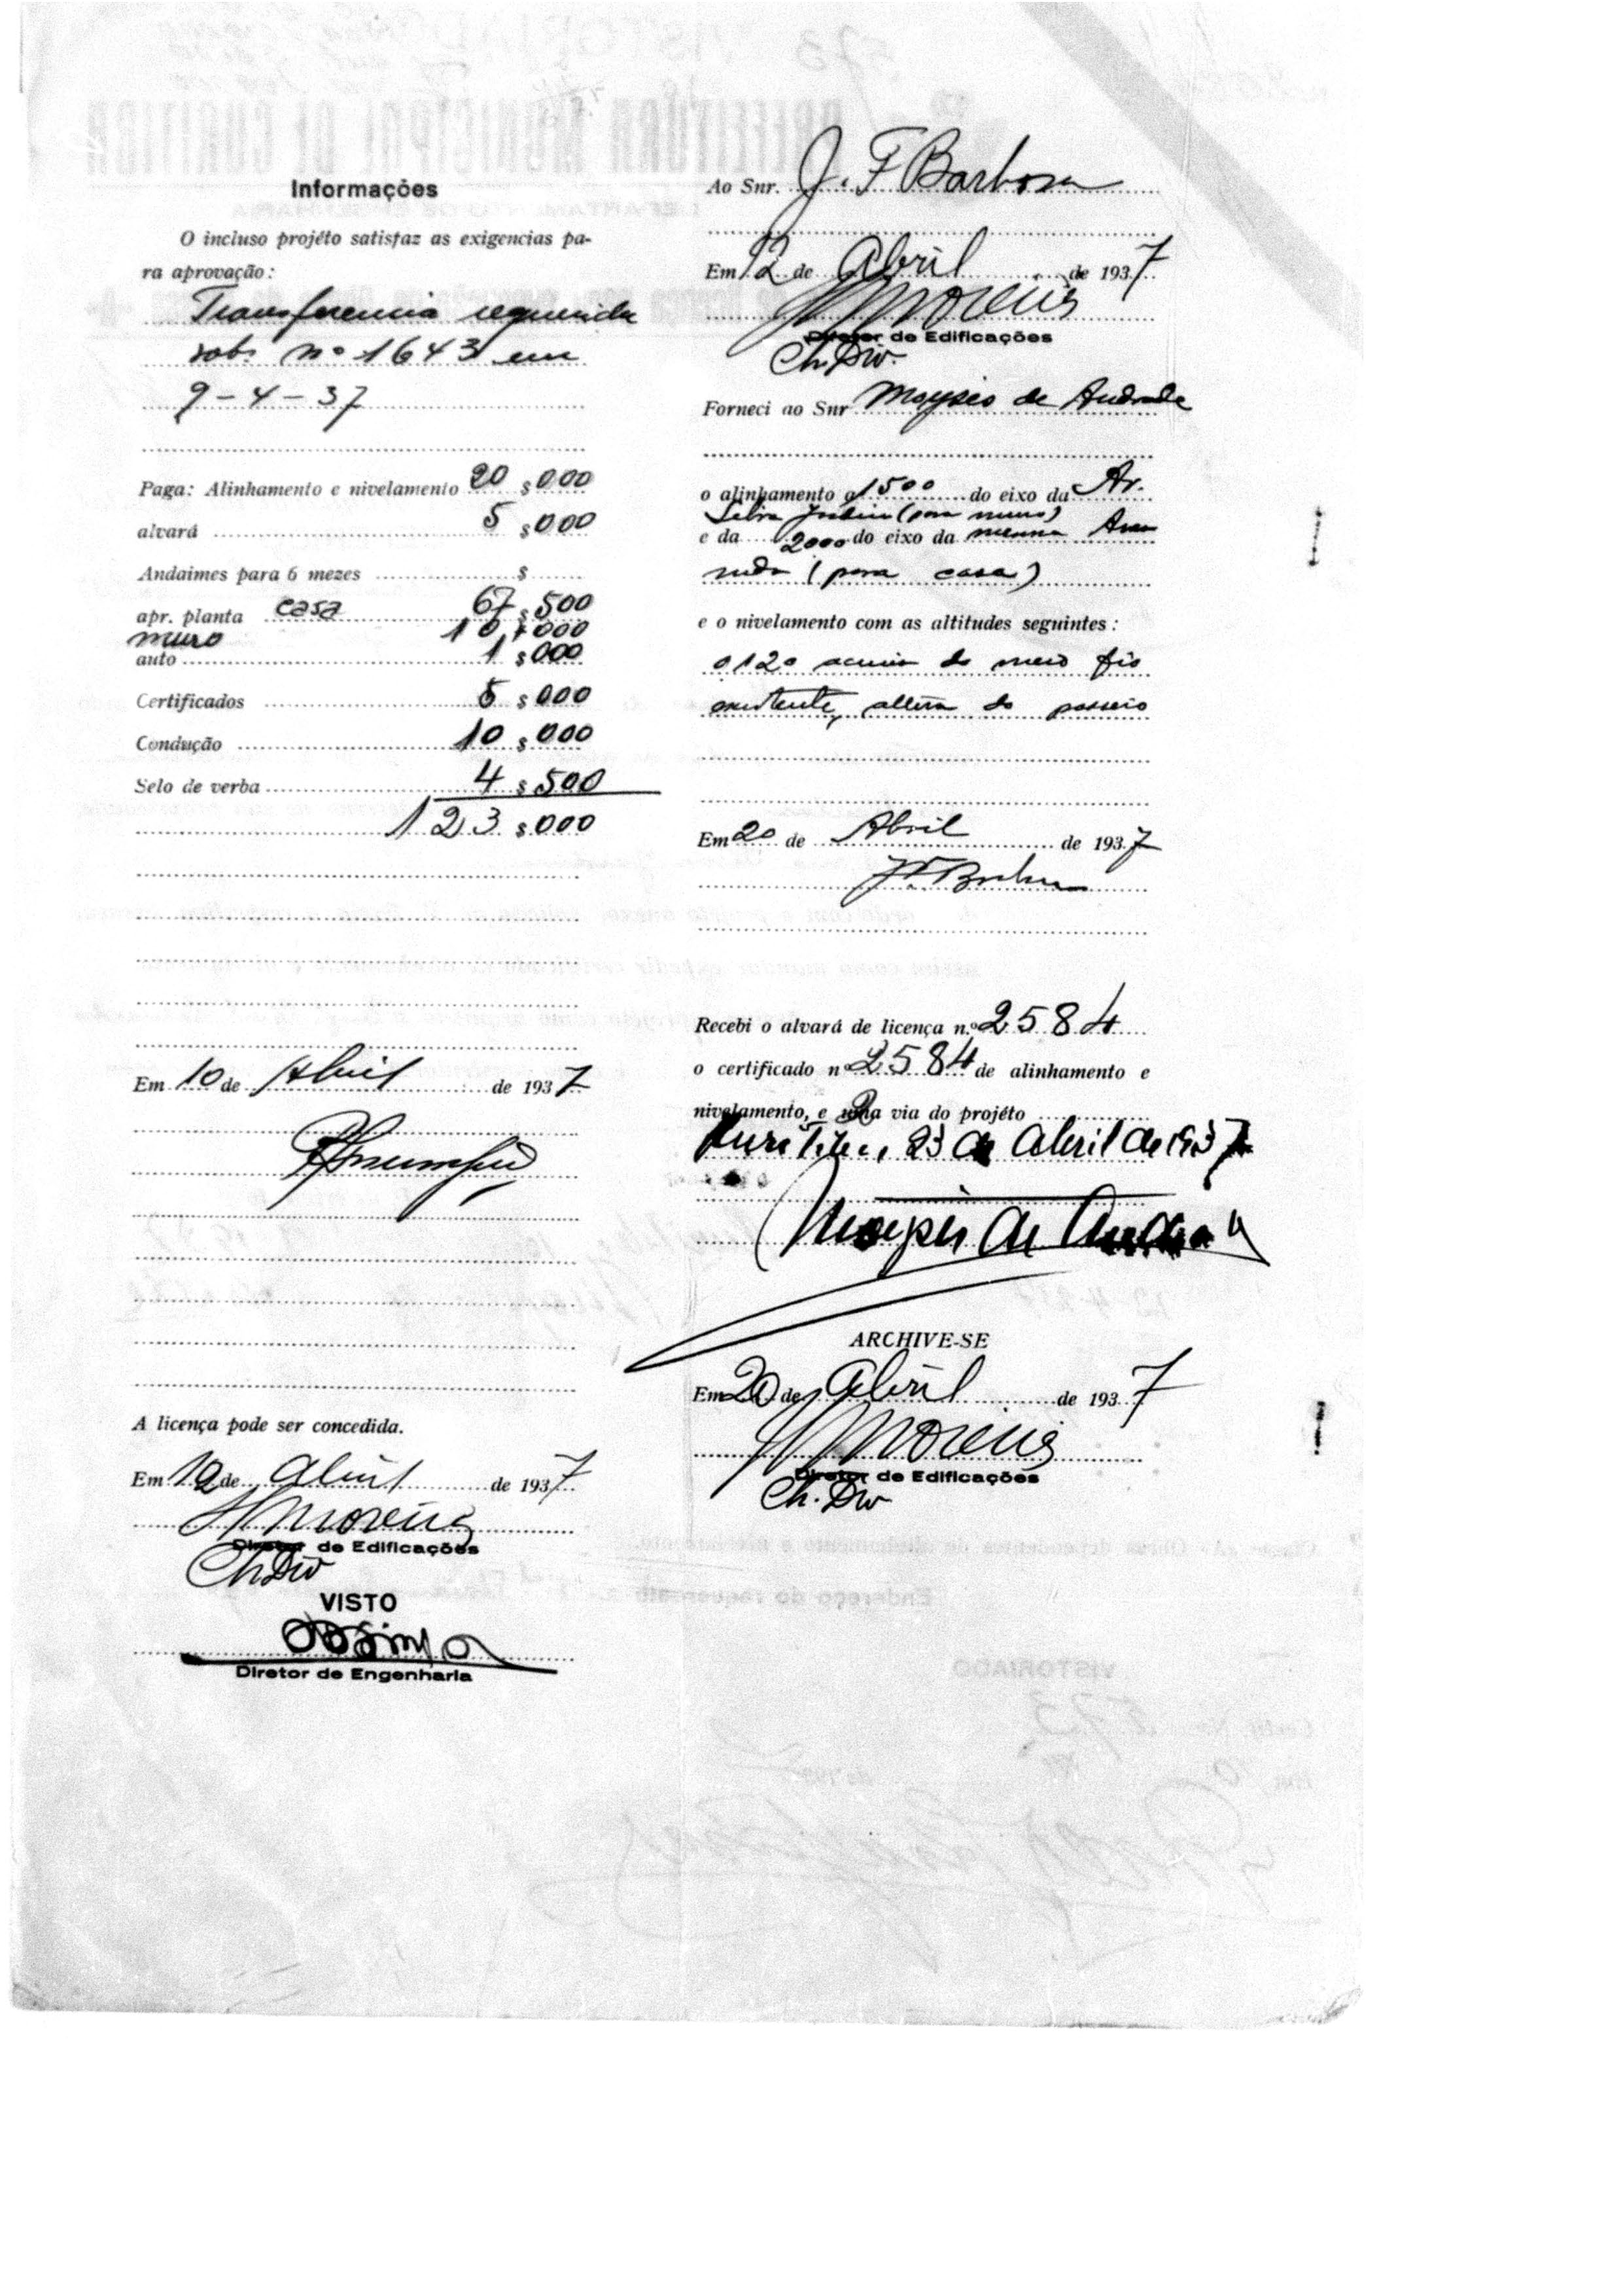 Informações
O incluso projéto satisfaz as exigencias pa-
ra aprovação:
Transferencia requerida
sob. nº 1643 em
9-4-37
Paga: Alinhamento e nivelamento 20 $ 000
alvará 5 $ 000
Andaimes para 6 mezes $
apr. planta casa 67 $ 500
muro 10 $ 000
auto 1 $ 000
Certificados 5 $ 000
Condução 10 $ 000
Selo de verba 4 $ 500
123 $ 000
Em 10 de Abril de 1937
A licença pode ser concedida.
Em 12 de Abril de 1937
Moreira
Diretor de Edificações
Ch. Div
VISTO
Diretor de Engenharia
Ao Snr. J. F Barbosa
Em 12 de Abril de 1937
Moreira
Diretor de Edificações
Ch. Div.
Forneci ao Snr Moysés de Andrade
o alinhamento a 1500 do eixo da Av.
Silva Jardim (para muro)
e da 2000 do eixo da mesma Ave
nida (para casa)
e o nivelamento com as altitudes seguintes:
0,120 acima do meio fio
existente, altura do passeio
Em 20 de Abril de 1937
Recebi o alvará de licença n.º 2584
o certificado n 2584 de alinhamento e
nivelamento, e uma via do projéto
Curitiba, 23 de Abril de 1937
Moysés de Andrade
ARCHIVE-SE
Em 20 de Abril de 1937
Moreira
Diretor de Edificações
Ch. Div